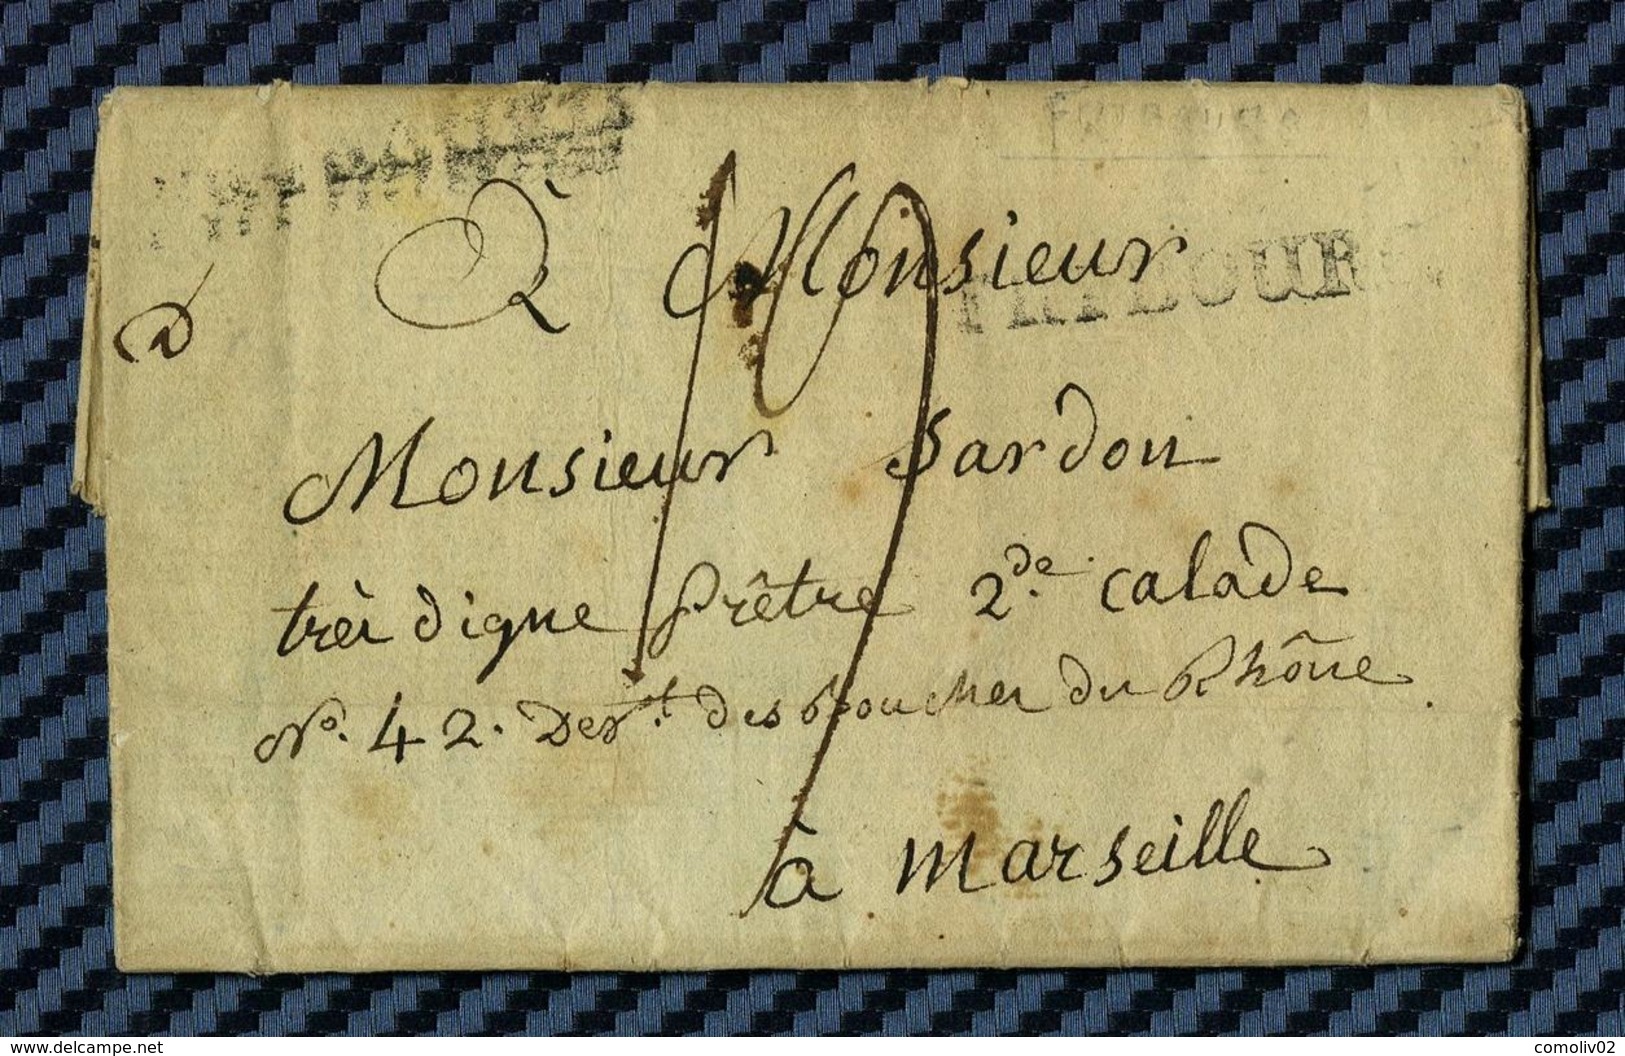 FRIBOURG
À Monsieur
FRYBOURG
Monsieur Sardou
très digne Prêtre 2.de Calade
No. 42. Der.t des Bouches du Rhône
à Marseille
19
delcampe.net
comoliv02